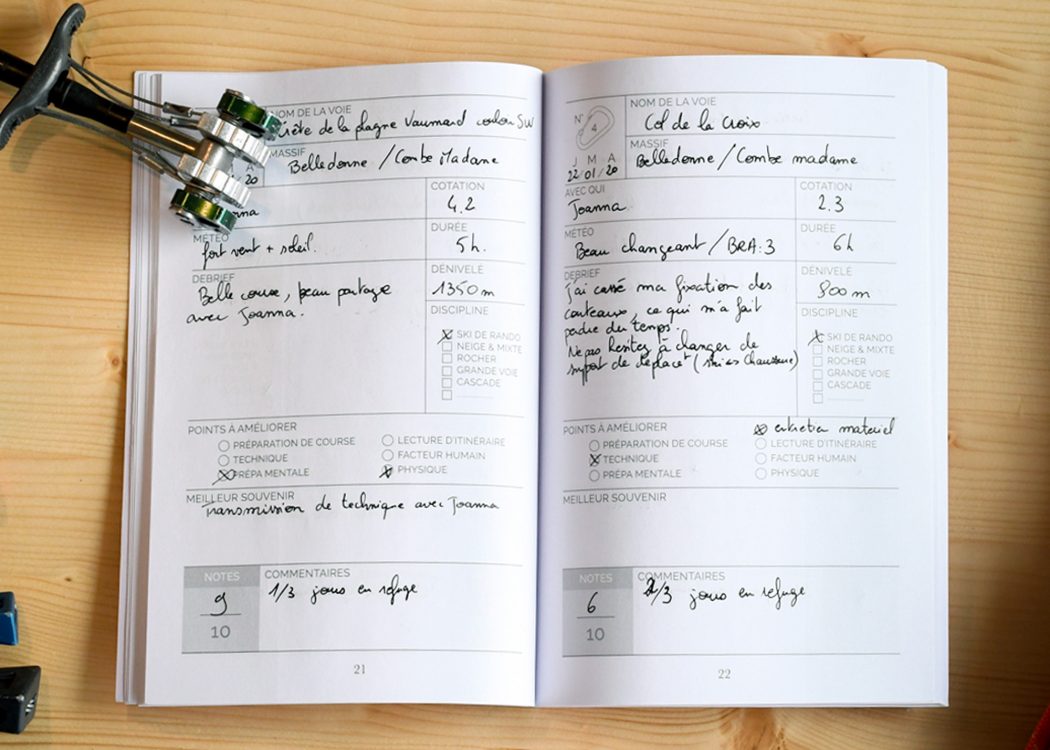 NOM DE LA VOIE
Crête de la plagne Vaumard couloir SW
MASSIF
Belledonne / Combe Madame
A
/20
COTATION
4.2
MÉTÉO
fort vent + soleil.
DURÉE
5h.
DEBRIEF
Belle course, beau partage
avec Joanna.
DÉNIVELÉ
1350 m
DISCIPLINE
SKI DE RANDO
NEIGE & MIXTE
ROCHER
GRANDE VOIE
CASCADE
POINTS À AMÉLIORER
PRÉPARATION DE COURSE
LECTURE D'ITINÉRAIRE
TECHNIQUE
FACTEUR HUMAIN
PRÉPA MENTALE
PHYSIQUE
MEILLEUR SOUVENIR
Transmission de technique avec Joanna
NOTES
9
10
COMMENTAIRES
1/3 jours en refuge
21
N°
4
NOM DE LA VOIE
Col de la Croix
MASSIF
Belledonne / Combe madame
J M A
22/01/20
AVEC QUI
Joanna
COTATION
2.3
MÉTÉO
Beau changeant / BRA: 3
DURÉE
6h
DEBRIEF
J'ai cassé ma fixation des
couteaux, ce qui m'a fait
perdre du temps.
Ne pas hésitez à changer de
support de déplacet (skies chaussure)
DÉNIVELÉ
900 m
DISCIPLINE
SKI DE RANDO
NEIGE & MIXTE
ROCHER
GRANDE VOIE
CASCADE
POINTS À AMÉLIORER
entretien materiel
PRÉPARATION DE COURSE
LECTURE D'ITINÉRAIRE
TECHNIQUE
FACTEUR HUMAIN
PRÉPA MENTALE
PHYSIQUE
MEILLEUR SOUVENIR
NOTES
6
10
COMMENTAIRES
2/3 jours en refuge
22